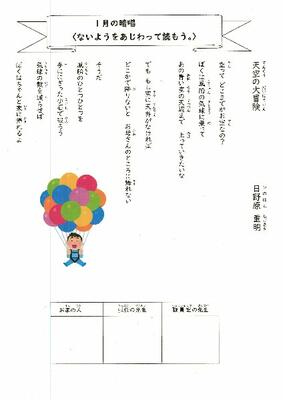 1月の暗唱
〈ないようをあじわって読もう。〉
天空の大冒険
日野原 重明
空って どこまでがお空なの？
ぼくは風船の気球に乗って
あの青い空の天辺まで 上っていきたいな
でも もし空に天井がなければ
どこかで降りないと お母さんのところに帰れない
そうだ
風船のひとつひとつを
手ににぎった小石で割ろう
気球の数を減らせば
ぼくはちゃんと家に帰れるよ
教員室の先生
担任の先生
お家の人